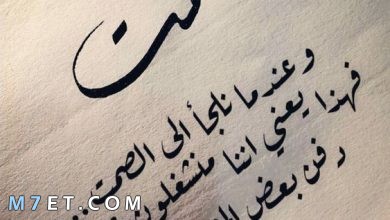 وعندما نلجأ الى الصمت..
فهذا يعني اننا منشغلون
دفن بعض
M7ET.COM